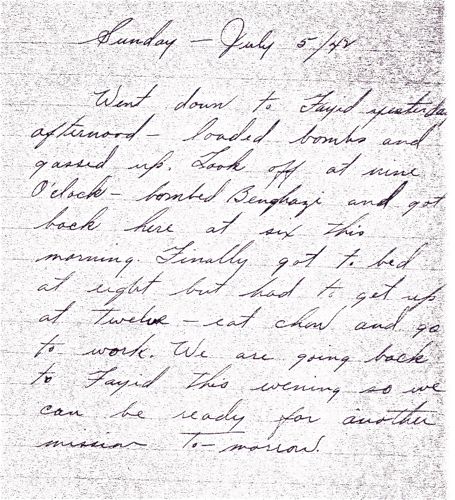 Sunday – July 5/42
Went down to Fayid yesterday
afternood – loaded bombs and
gassed up. Took off at nine
O'clock – bombed Benghazi and got
back here at six this
morning. Finally got to bed
at eight but had to get up
at twelve – eat chow and go
to work. We are going back
to Fayid this evening so we
can be ready for another
mission to-morrow.